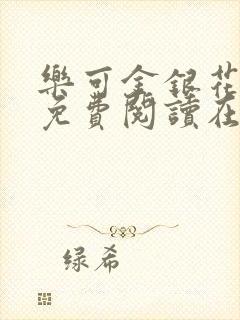 樂可金銀花
免費閱讀在
绿希